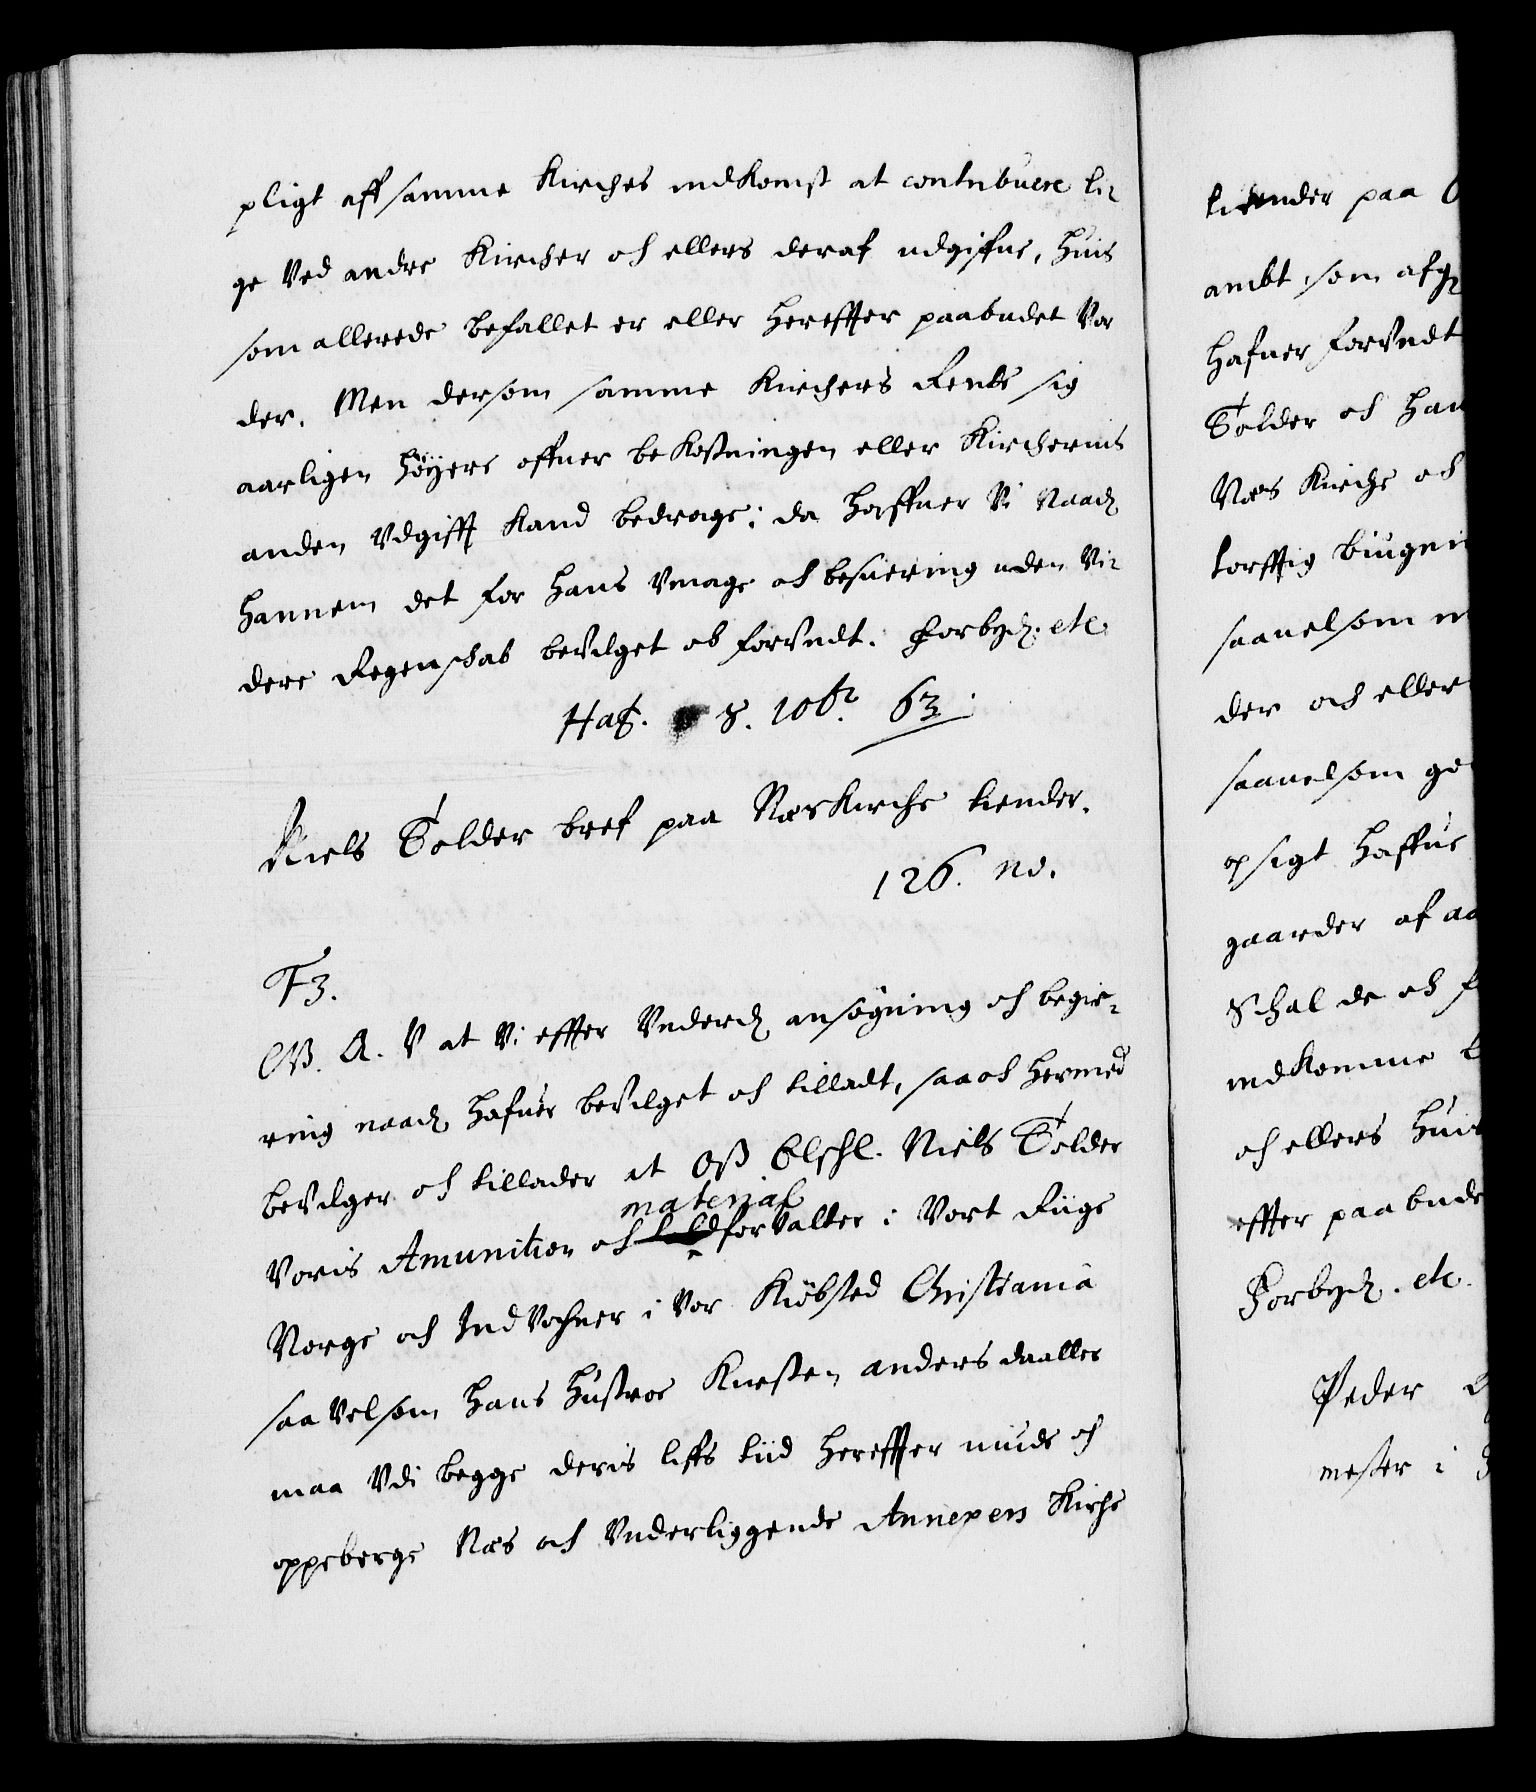 pligt aff samme Kirches indkomst at contribuere li-
ge Ved andre Kircher och ellers deraf udgifue, huis
som allerede befallet er eller hereffter paabudet Vor
der. Men dersom samme Kirchers Rente sig
aarligen høyere offuer bekostningen eller Kirchernis
anden Vdgifft kand bedrage; da haffuer Vi Naad
hannem det for hans Vmage och besuering uden Vi-
dere Regenschab bevilget och forundt. Forbyd. etc
Haf. 8. 10br. 63.
Niels Tolder bref paa Næs Kirche tiender.
126. no.
F3.
G. A. V at Vi effter Underd ansøgning och begie-
ring naad hafuer bevilget och tilladt, saa och hermed
bevilger och tillader at Oss Elschl. Niels Tolder
material
Voris Amunition och forvalter i Vort Riige
Norge och Indvohner i Vor Kiøbsted Christiania
saa Velsom hans Hustroe Kirsten anders daatter
maa Vdi begge deris liffs tiid hereffter niude och
oppeberge Næs och Underliggende Annexers Kirche
tiender paa
ambt, som afg
hafuer forundt
Tolder och han
Næs Kirche och
saauelsom
der och eller
saauelsom
opsigt haffue
gaarder af
Schal de och
indkomme
och ellers huis
effter paabude
Forbyd. etc.
Peder
mester i